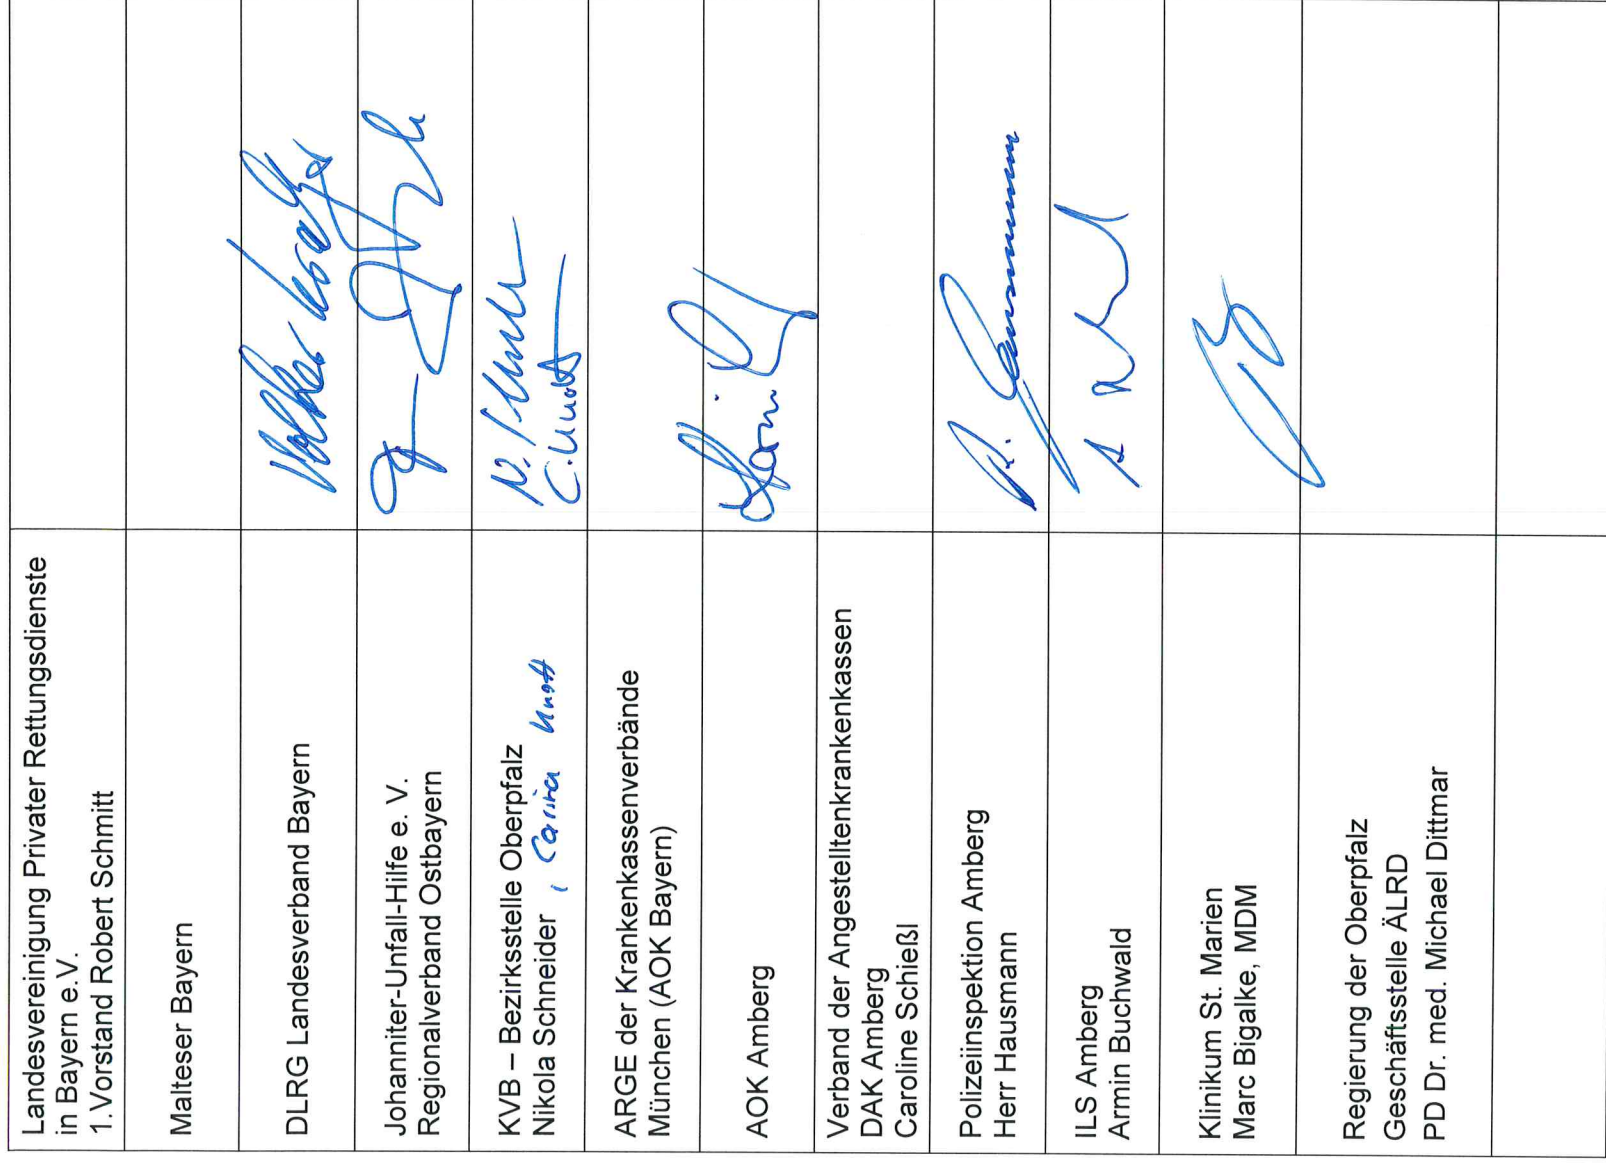 Landesvereinigung Privater Rettungsdienste
in Bayern e.V.
1.Vorstand Robert Schmitt
Malteser Bayern
DLRG Landesverband Bayern
Volker
Johanniter-Unfall-Hilfe e. V.
Regionalverband Ostbayern
KVB – Bezirksstelle Oberpfalz
Nikola Schneider , Carina Knott
N.
C. Knott
ARGE der Krankenkassenverbände
München (AOK Bayern)
AOK Amberg
Verband der Angestelltenkrankenkassen
DAK Amberg
Caroline Schießl
Polizeiinspektion Amberg
Herr Hausmann
ILS Amberg
Armin Buchwald
Klinikum St. Marien
Marc Bigalke, MDM
Regierung der Oberpfalz
Geschäftsstelle ÄLRD
PD Dr. med. Michael Dittmar